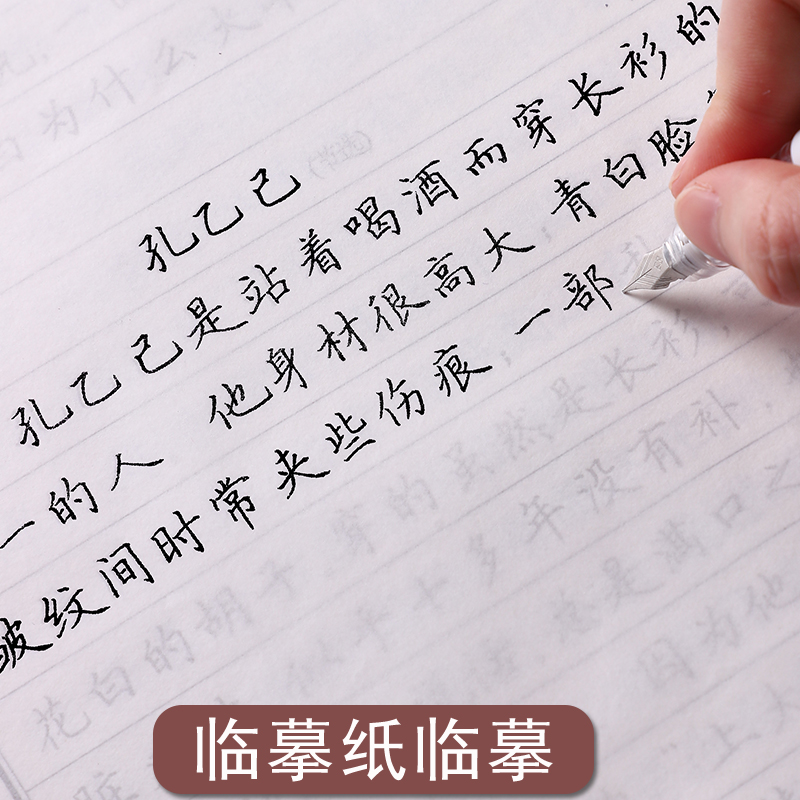 为什么
孔乙己
(节选)
孔乙己是站着喝酒而穿长衫的
一的人 他身材很高大；青白脸
皱纹间时常夹些伤痕；一部
花白的胡子 穿的虽然是长衫，
似乎十多年没有补，
总是满口之
因为他
上大
临摹纸临摹